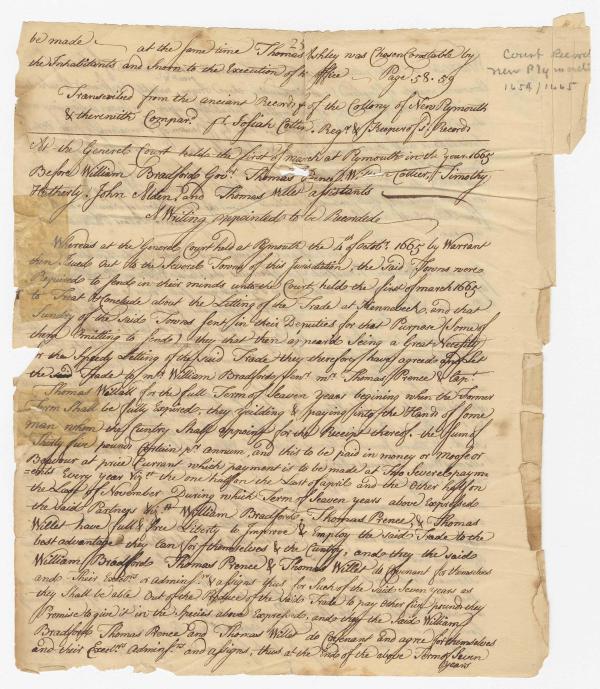 23
be made at the same time Thomas Ashley was Chosen Constable by
the Inhabitants and Sworn to the Execution of sd office Page 58. 59
Court Record
New Plymouth
1654/1665
Transcribed from the ancient Records of the Collony of New Plymouth
& therewith Compard pr Josiah Cotton Regr & Keeper of sd Records
At the Generll Court held the first of march at Plymouth in the year. 1665
Before William Bradford Govr. Thomas Prence, Wm Collier, Timothy
Hatherly, John Alden, and Thomas Willet assistants
A Writing appointed to be Recorded
Whereas at the Generll Court held at Plymouth the 4th Octobr. 1665 by Warrant
then Issued Out to the Severll Towns of this Jurisdiction, the Said Towns were
Required to Send in their minds unto the Court, held the first of march 1665
to Treat & Conclude about the Letting of the Trade at Kennebeck, and that
Sundry of the Said Towns Sent in their Deputies for that Purpose (Some of
them Omitting to Send) they that then appeard Seing a Great Necessity
for the Speedy Letting of the Said Trade they therefore have agreed and let
the said Trade to mr William Bradford Senr. mr Thomas Prence & Capt.
Thomas Willet for the full Term of Seaven years begining when the Former
Term Shall be fully Expired, they yielding & paying into the Hand of Some
man whom the Cuntry Shall appoint for the Receipt thereof the Sum of
Thirty five pounds pr annum, and this to be paid in money or Moose or
Beavour at price Currant which payment is to be made at Two Severll paym
=ents Every year vizt the one half on the Last of april and the Other half on
the Last of November During which Term of Seaven years above Expressed
the Said Partners vizt William Bradford, Thomas Prence, & Thomas
Willet have full & free Liberty to Improve & Employ the Said Trade to the
best advantage they can for themselves & the Cuntry, and they the said
William Bradford Thomas Prence & Thomas Willet do Covenant for themselves
and Their Execrs or adminrs & assigns thus for Such of the Said Seven years as
they Shall be able Out of the Produce of the Said Trade to pay other five pounds they
Promise to give it in the Species above Expressd, and they the Said William
Bradford Thomas Prence and Thomas Willet do Covenant and agree for themselves
and their Execrs Adminrs and assigns, thus at the End of the above Term of Seven
years